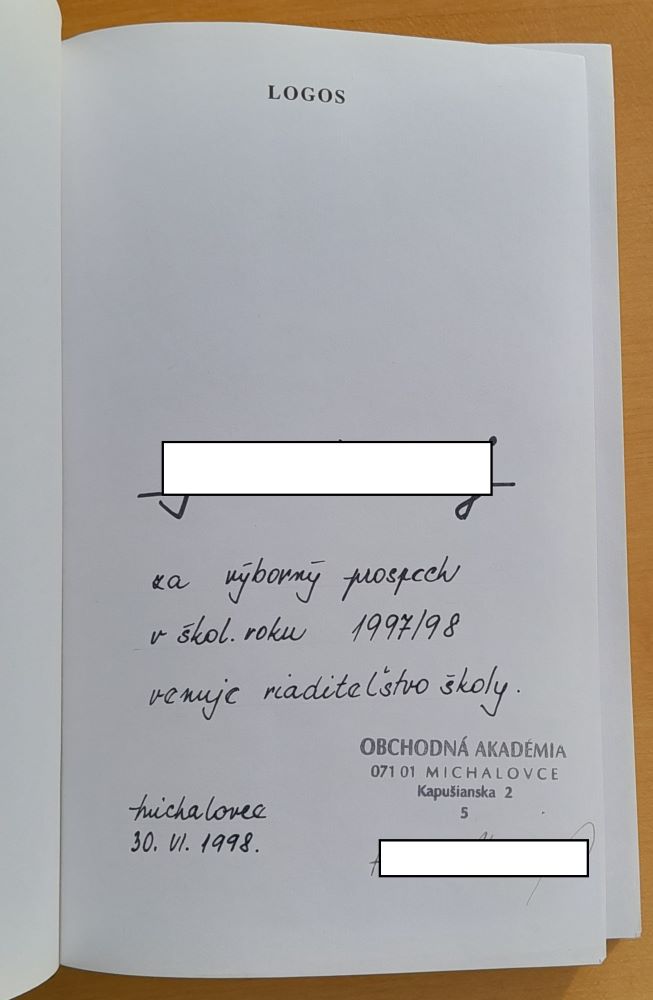 LOGOS
za výborný prospech
v škol. roku 1997/98
venuje riaditeľstvo školy.
OBCHODNÁ AKADÉMIA
071 01 MICHALOVCE
Kapušianska 2
5
Michalovce
30. VI. 1998.